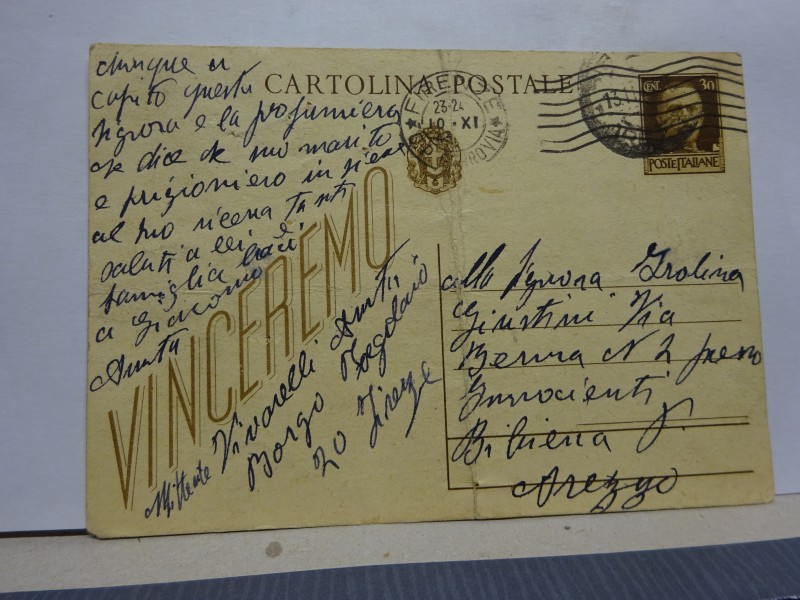 CARTOLINA POSTALE
CENT. 30
POSTE ITALIANE
FIRENZE
23-24
10 · XI
FERROVIA
13
VINCEREMO
capito questa
signora e la profumiera
che dice che suo marito
e prigioniero insieme
al tuo tanti
saluti a lei e
famiglia baci
a Giacomo
Anita
Mittente Vivarelli Anita
Borgo
20 Firenze
alla Signora Isolina
Giustini Via
Berna N 2 presso
Innocienti
Bibiena
Arezzo